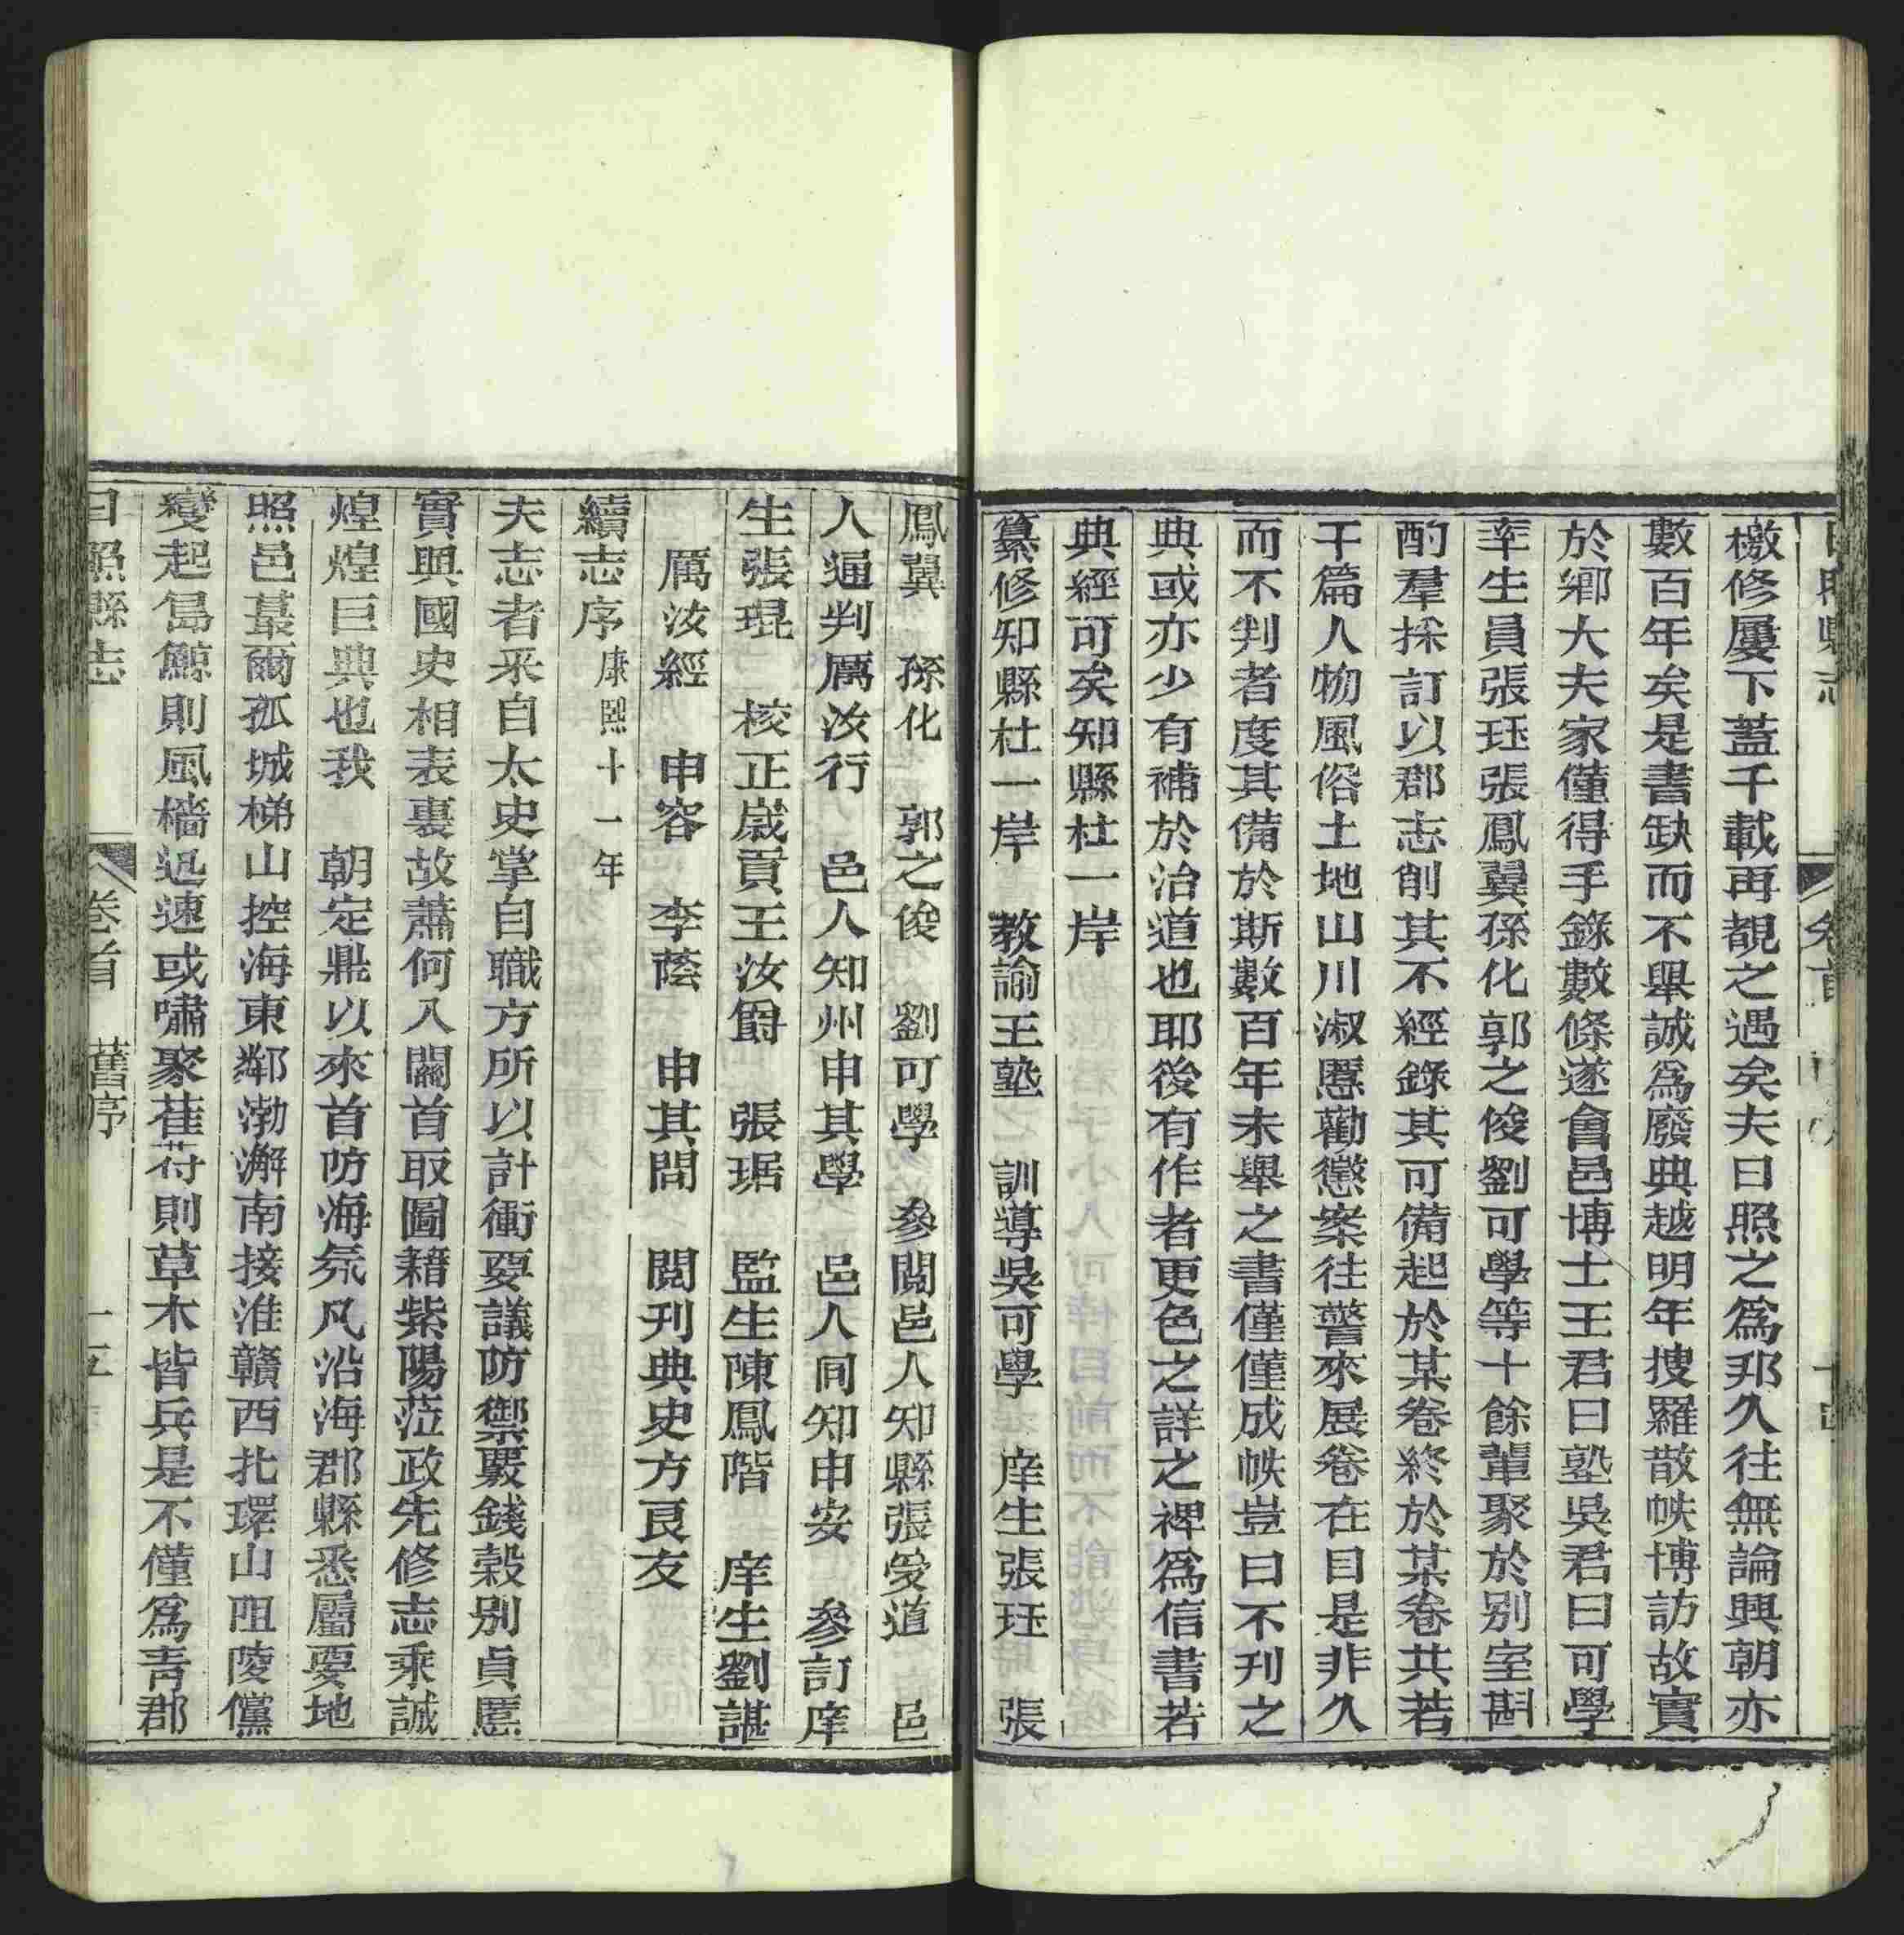 日照縣志 卷首
檄修屢下蓋千載再覩之遇矣夫日照之爲邦久往無論興朝亦
數百年矣是書缺而不舉誠爲廢典越明年搜羅散帙博訪故實
於鄉大夫家僅得手錄數條遂會邑博士王君曰塾吳君曰可學
率生員張珏張鳳翼孫化郭之俊劉可學等十餘輩聚於別室斟
酌羣採訂以郡志削其不經錄其可備起於某卷終於某卷共若
干篇人物風俗土地山川淑慝勸懲案往警來展卷在目是非久
而不判者度其備於斯數百年未舉之書僅僅成帙豈曰不刊之
典或亦少有補於治道也耶後有作者更色之詳之裨爲信書若
典經可矣知縣杜一岸
纂修知縣杜一岸 教諭王塾 訓導吳可學 庠生張珏 張
鳳翼 孫化 郭之俊 劉可學 參閱邑人知縣張受道 邑
人通判厲汝行 邑人知州申其學 邑人同知申安 參訂庠
生張琨 校正歲貢王汝爵 張琚 監生陳鳳階 庠生劉諶
厲汝經 申容 李蔭 申其問 閱刊典史方良友
續志序康熙十一年
夫志者釆自太史掌自職方所以計衝要議防禦覈錢穀別貞慝
實與國史相表裏故蕭何入關首取圖籍紫陽蒞政先修志乘誠
煌煌巨典也我 朝定鼎以來首防海氛凡沿海郡縣悉屬要地
照邑蕞爾孤城梯山控海東鄰渤澥南接淮贛西北環山阻陵儻
變起島鯨則風檣迅速或嘯聚萑苻則草木皆兵是不僅爲青郡
日照縣志 卷首 舊序 十五